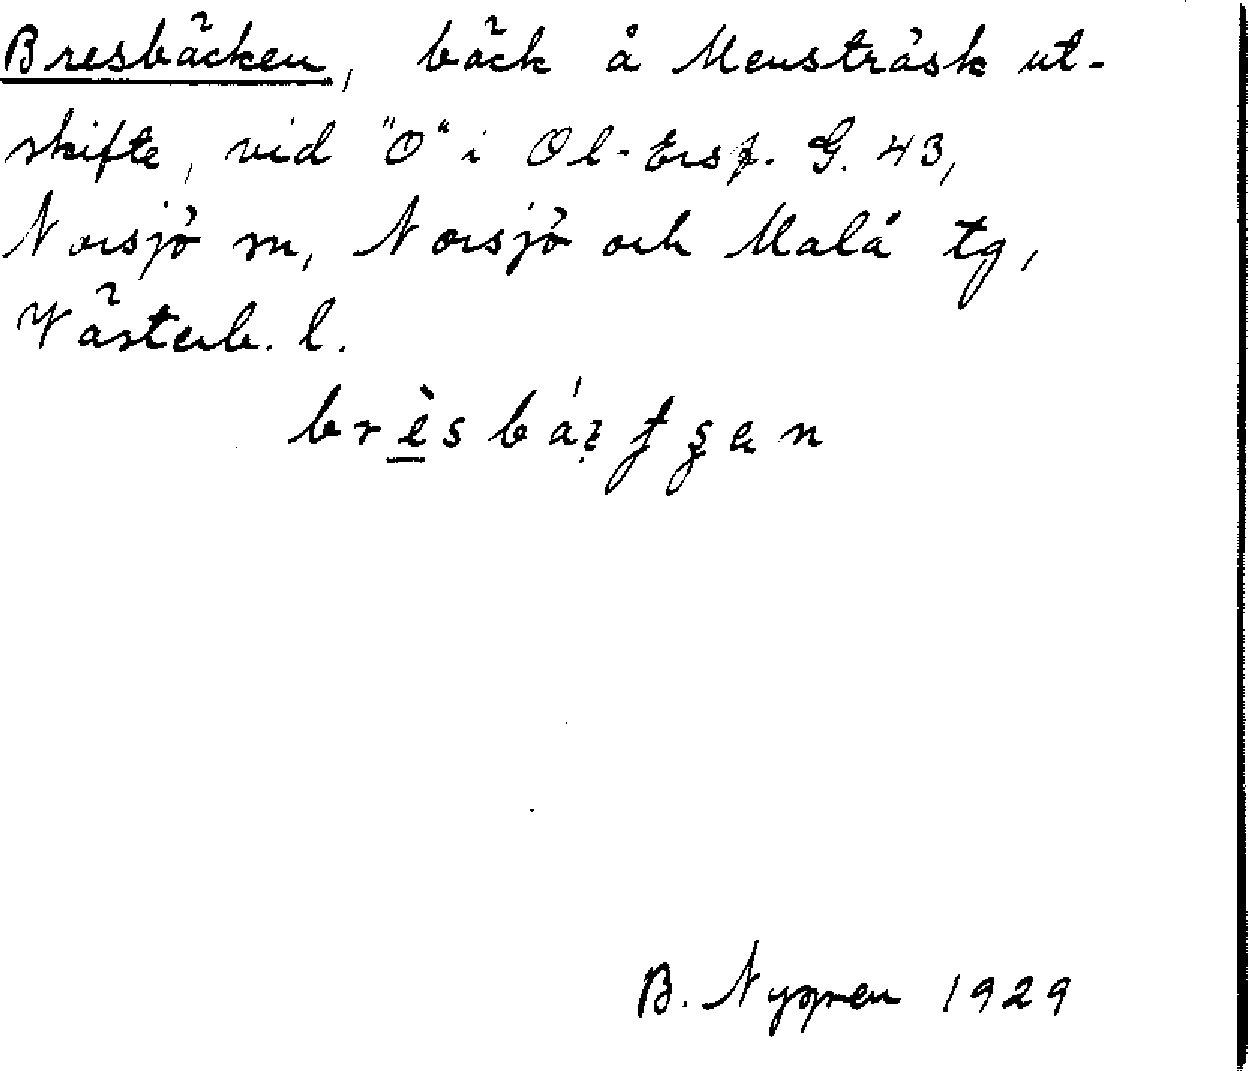 Bresbäcken, bäck å Mensträsk ut-
skifte, vid "O" i Ol-Ersp. G. 43,
Norsjö sn, Norsjö och Malå tg,
Västerb. l.
B. Nygren 1929